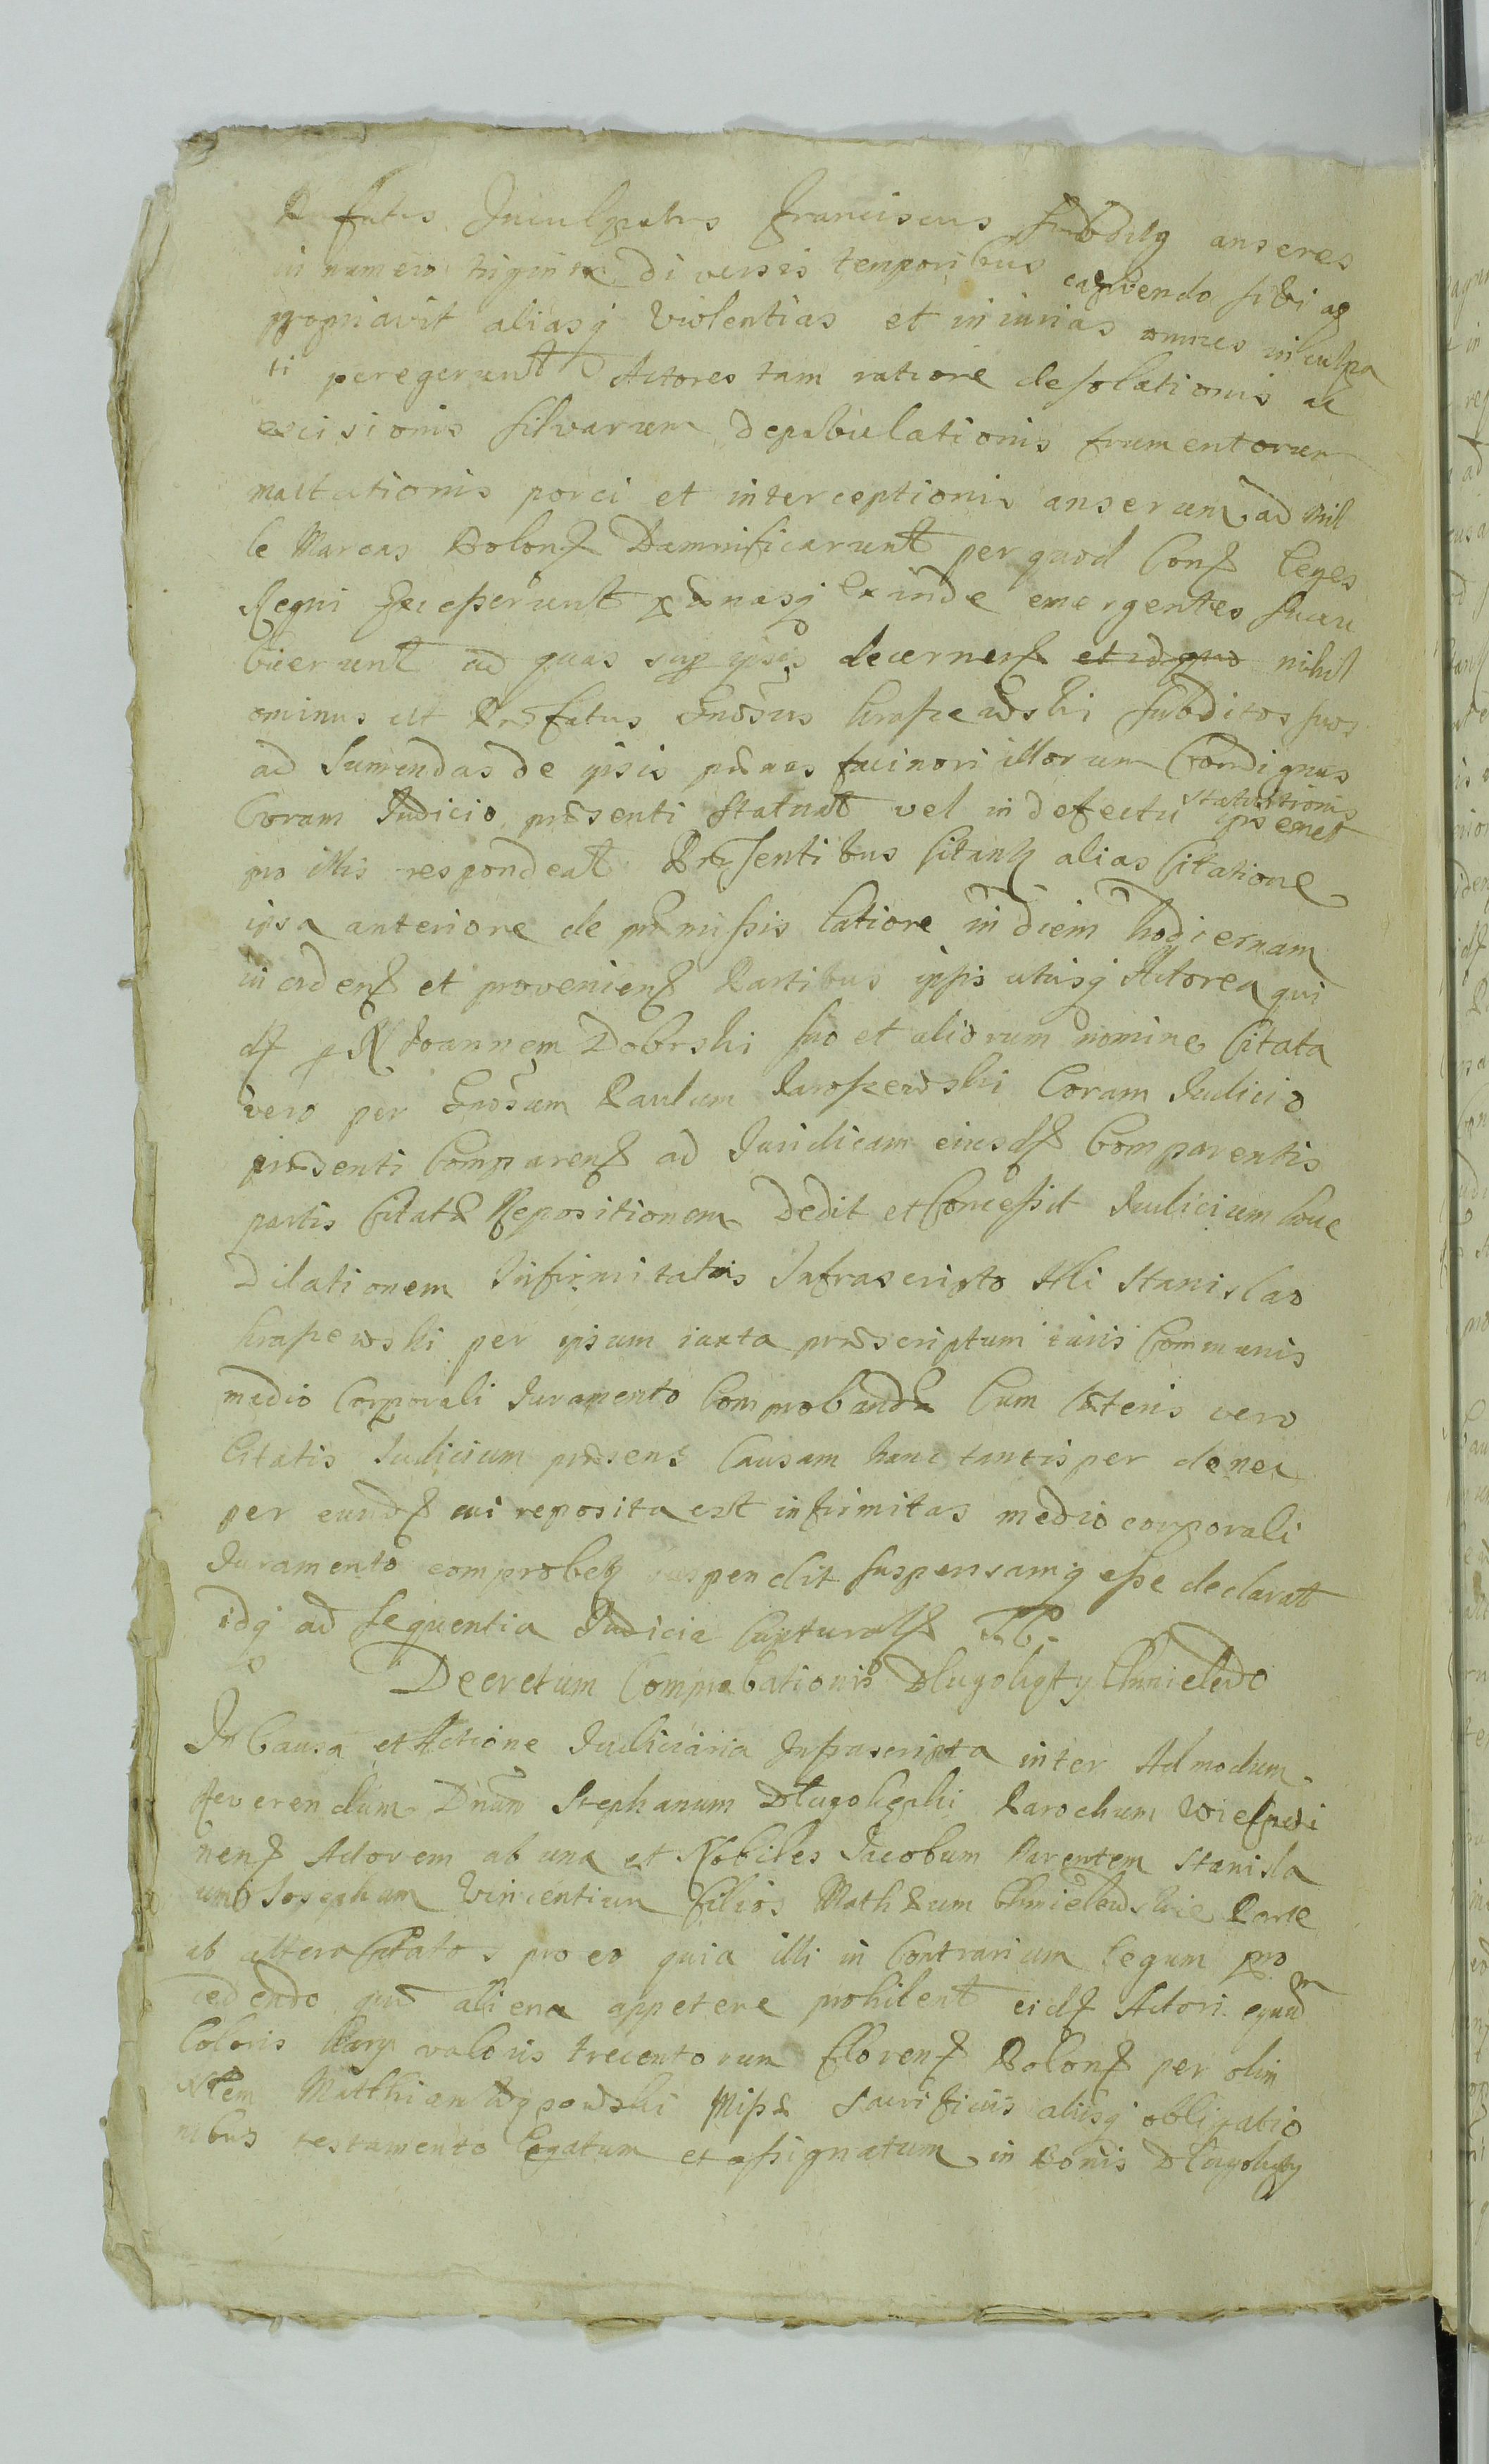 Præfatus Inculpatus Franciscus Subditg anseres
in numero triginta diversis temporibus capiendo sibi ap
propriavit aliasq violentias et iniurias omnes inculpa
ti peregerunt Actores tam ratione desolationis ac
excisionis silvarum depabulationis frumentorum
mactationis porci et interceptionis anserum ad mil
le Marcas Polon Damnificarunt per quod Con Leges
Regni Excesserunt pænasq exinde emergentes succu
buerunt ad quas sup ipsis decernen et id quo nihil
ominus ut Præfatus Gnosus Krassewski subditos suos
ad sumendas de ipsis pænas facinori illorum Condignas
Coram Iudicio præsenti statuat vel in defectu statuitionis ipsemet
pro illis respondeat Præsentibus Citan alias Citatione
ipsa anteriore de præmissis latiore in diem hodiernam
inciden et provenien Partibus ipsis utrisq Actorea qui
d p N Joannem Dobrski suo et aliorum nomine Citata
vero per Gnosum Paulum Karossewski Coram Iudicio
præsenti Comparen ad Iuridicam eiusd Comparentis
partis Citatæ Repositionem Dedit et Concessit Iudicium hoce
Dilationem Infirmitatis Infrascripto Illi Stanislao
Krassewski per ipsum iuxta præscriptum iuris Communis
medio Corporali Iuramento Comprobandæ Cum Cæteris vero
Citatis Iudicium præsens Causam hanc tantisper donec
per eund cui reposita est infirmitas medio corporali
Iuramento comprobet suspendit suspensamq esse declarat
idq ad sequentia Iudicia Captural
Decretum Comprobationis Dlugolięki y Chmielewo
In Causa et Actione Iudiciaria Infrascripta inter Admodum
Reverendum Dnum Stephanum Dlugolięcki Parochum
nen Actorem ab una et Nobiles Jacobum Parentem Stanisla
um Josephum Vincentium filios Mathæum Chmielewskie Parte
ab altera Citatos pro eo quia illi in Contrarium legum pro
cedendo quæ aliena appetere prohibent eid Actori equum
Coloris kary valoris trecentorum floren Polon per olim
Nlem Matthiam Missæ Sacrificiis aliisq obligatio
nibus testamento Legatum et assignatum in Bonis Dlugolięky